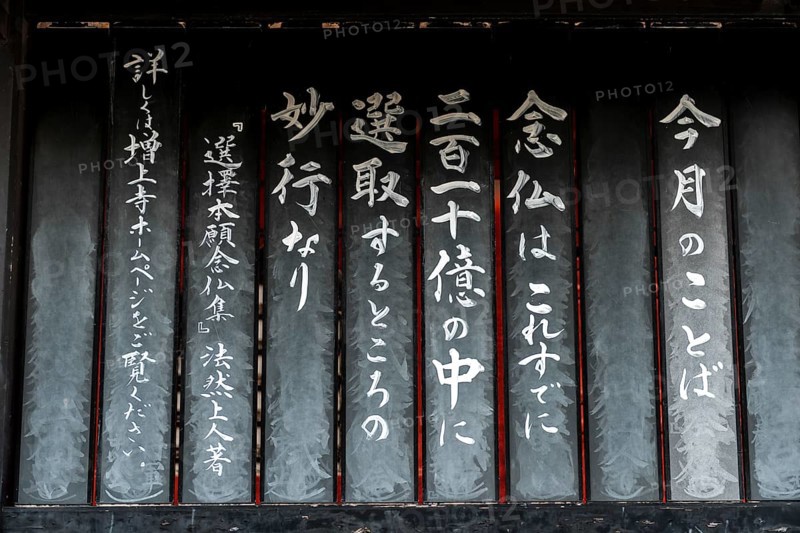 今月のことば
念仏はこれすでに
二百一十億の中に
選取するところの
妙行なり
『選擇本願念仏集』 法然上人著
詳しくは増上寺ホームページをご覧ください。
PHOTO12